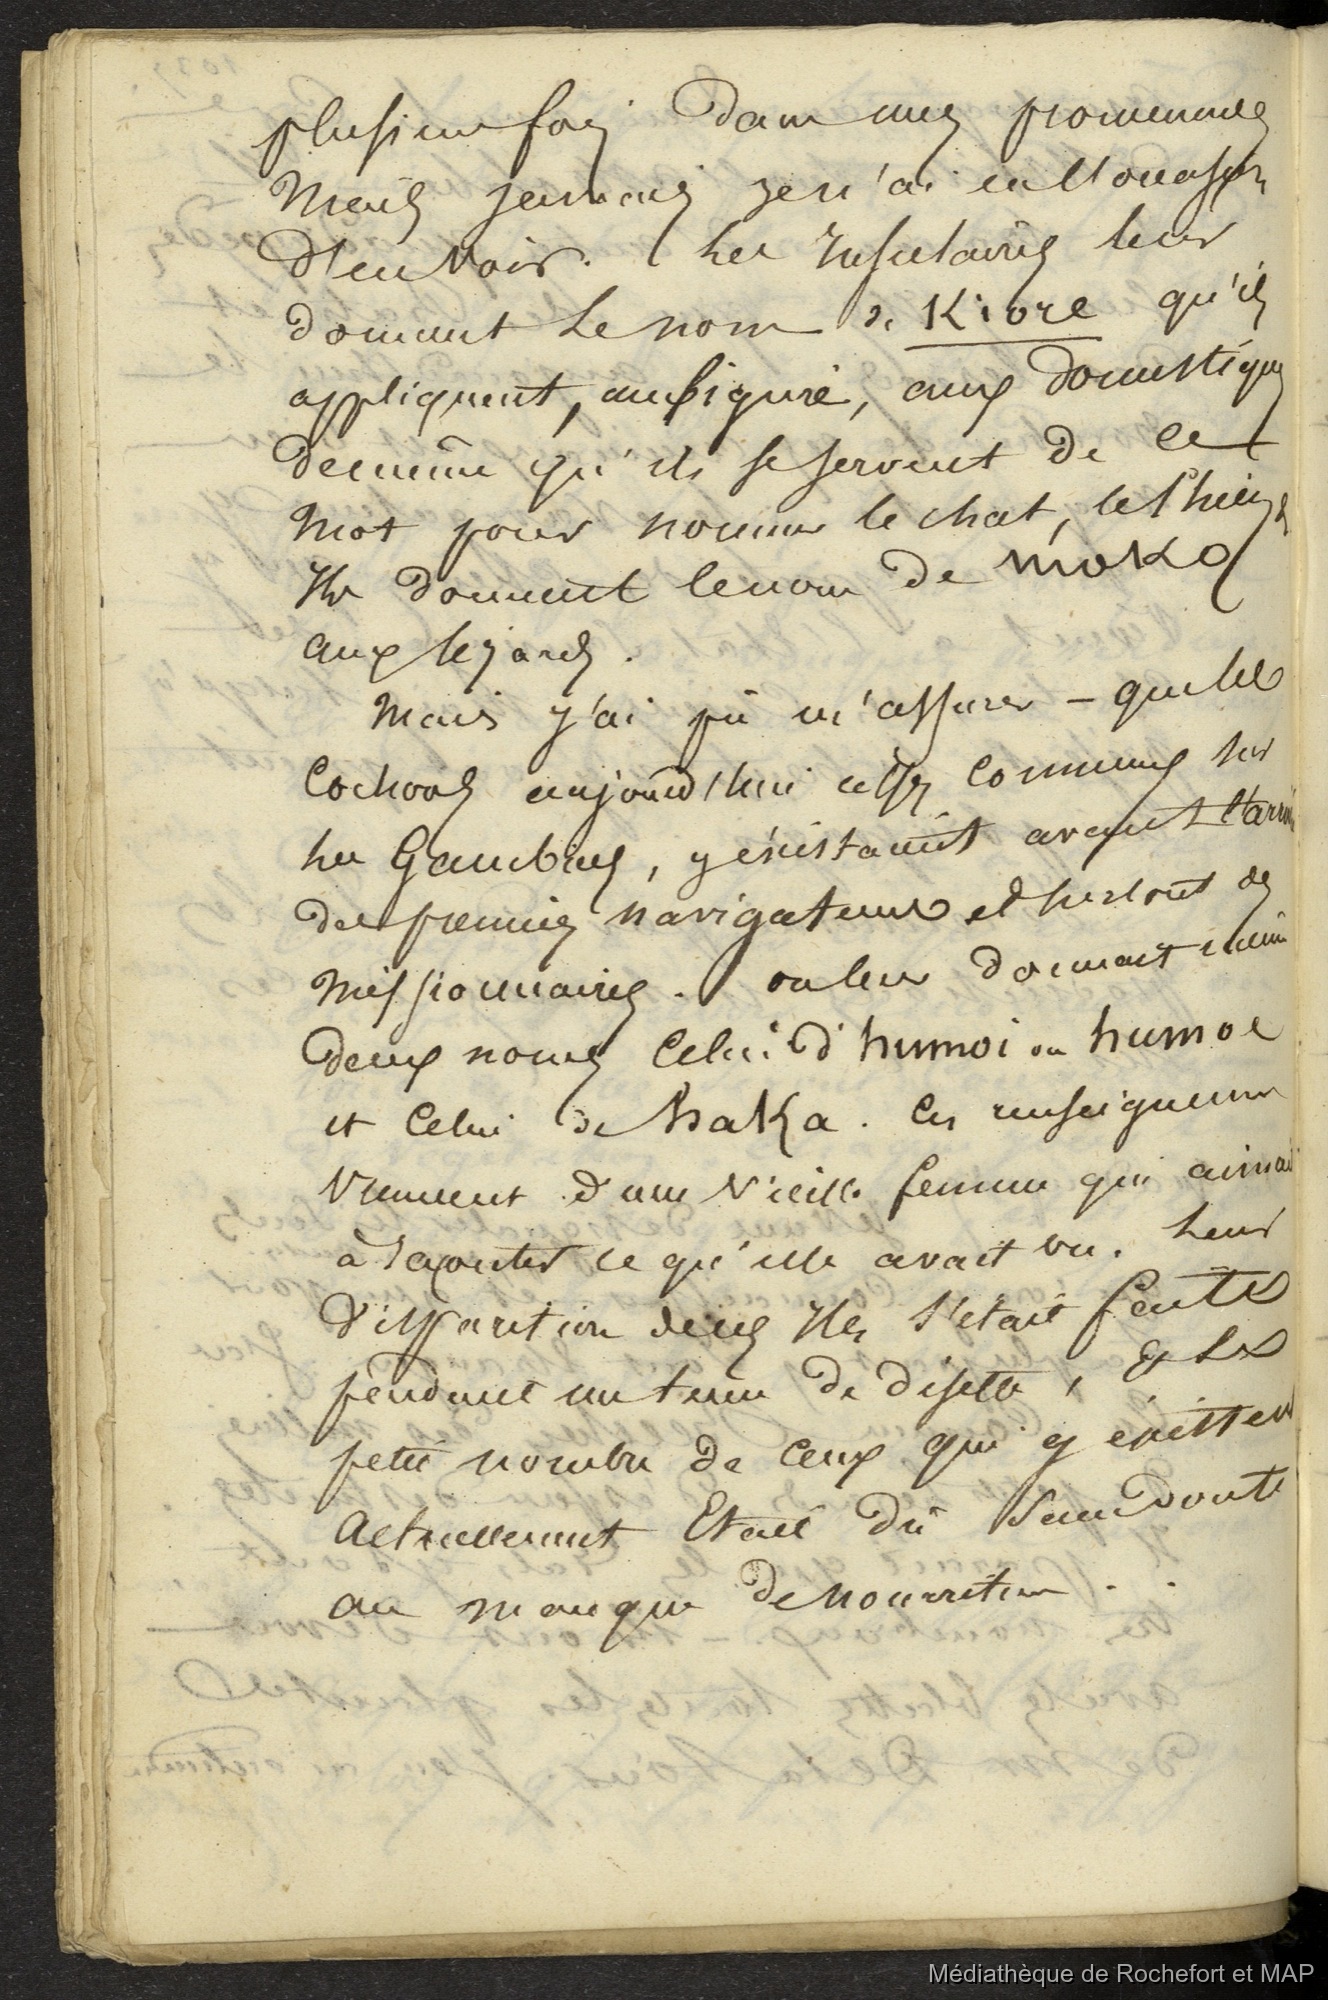 plusieurs fois Dans mes promenades
Mais jamais je n'ai eu l'occasion
D'en voir. les Insulaires leur
donnent le nom de Kiore qu'ils
appliquent, au figuré, aux Domestiques
de même qu'ils se servent de ce
Mot pour nommer le chat, le Chien,
Ils donnent le nom de moko
aux lézards.
Mais j'ai pû m'assurer – que les
Cochons aujourd'hui assez communs sur
les Gambier, y existaient avant l'arrivée
des premiers navigateurs et surtout des
Missionnaires. on leur donnait même
Deux noms Celui d'humoi ou humoe
et Celui de . Ces renseignemens
Viennent d'une Vieille femme qui aimait
à raconter ce qu'elle avait vu. Leur
Disparition des Iles s'était faite
pendant un tems de disette, & le
petit nombre de ceux qui y existent
Actuellement Etait dû sans doute
au manque de nourriture.
Médiathèque de Rochefort et MAP